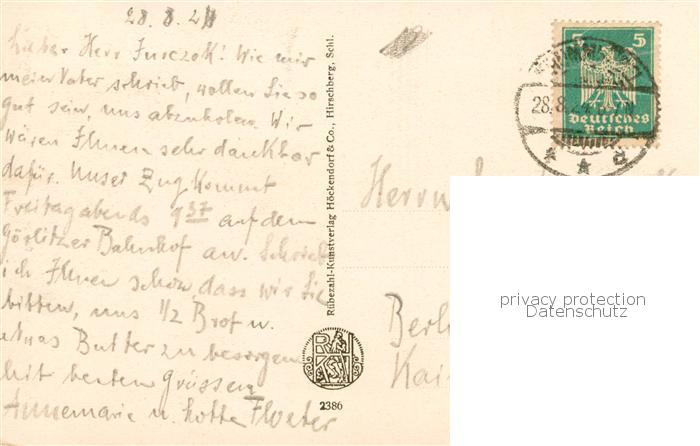 28.8.24
Lieber Herr Jurczok! Wie mir
mein Vater schrieb, wollen Sie so
gut sein, uns abzuholen. Wir
wären Ihnen sehr dankbar
dafür. Unser Zug kommt
Freitagabends 9 37 auf dem
Görlitzer Bahnhof an. Schrieb
ich Ihnen schon, dass wir Sie
bitten, uns 1/2 Brot u.
etwas Butter zu besorgen
Mit besten Grüssen
Annemarie u. Lotte
Rübezahl-Kunstverlag Höckendorf & Co., Hirschberg, Schl.
2386
5 5
28.8.2
Deutsches
Reich
Herrn
Berli
Kai
privacy protection
Datenschutz